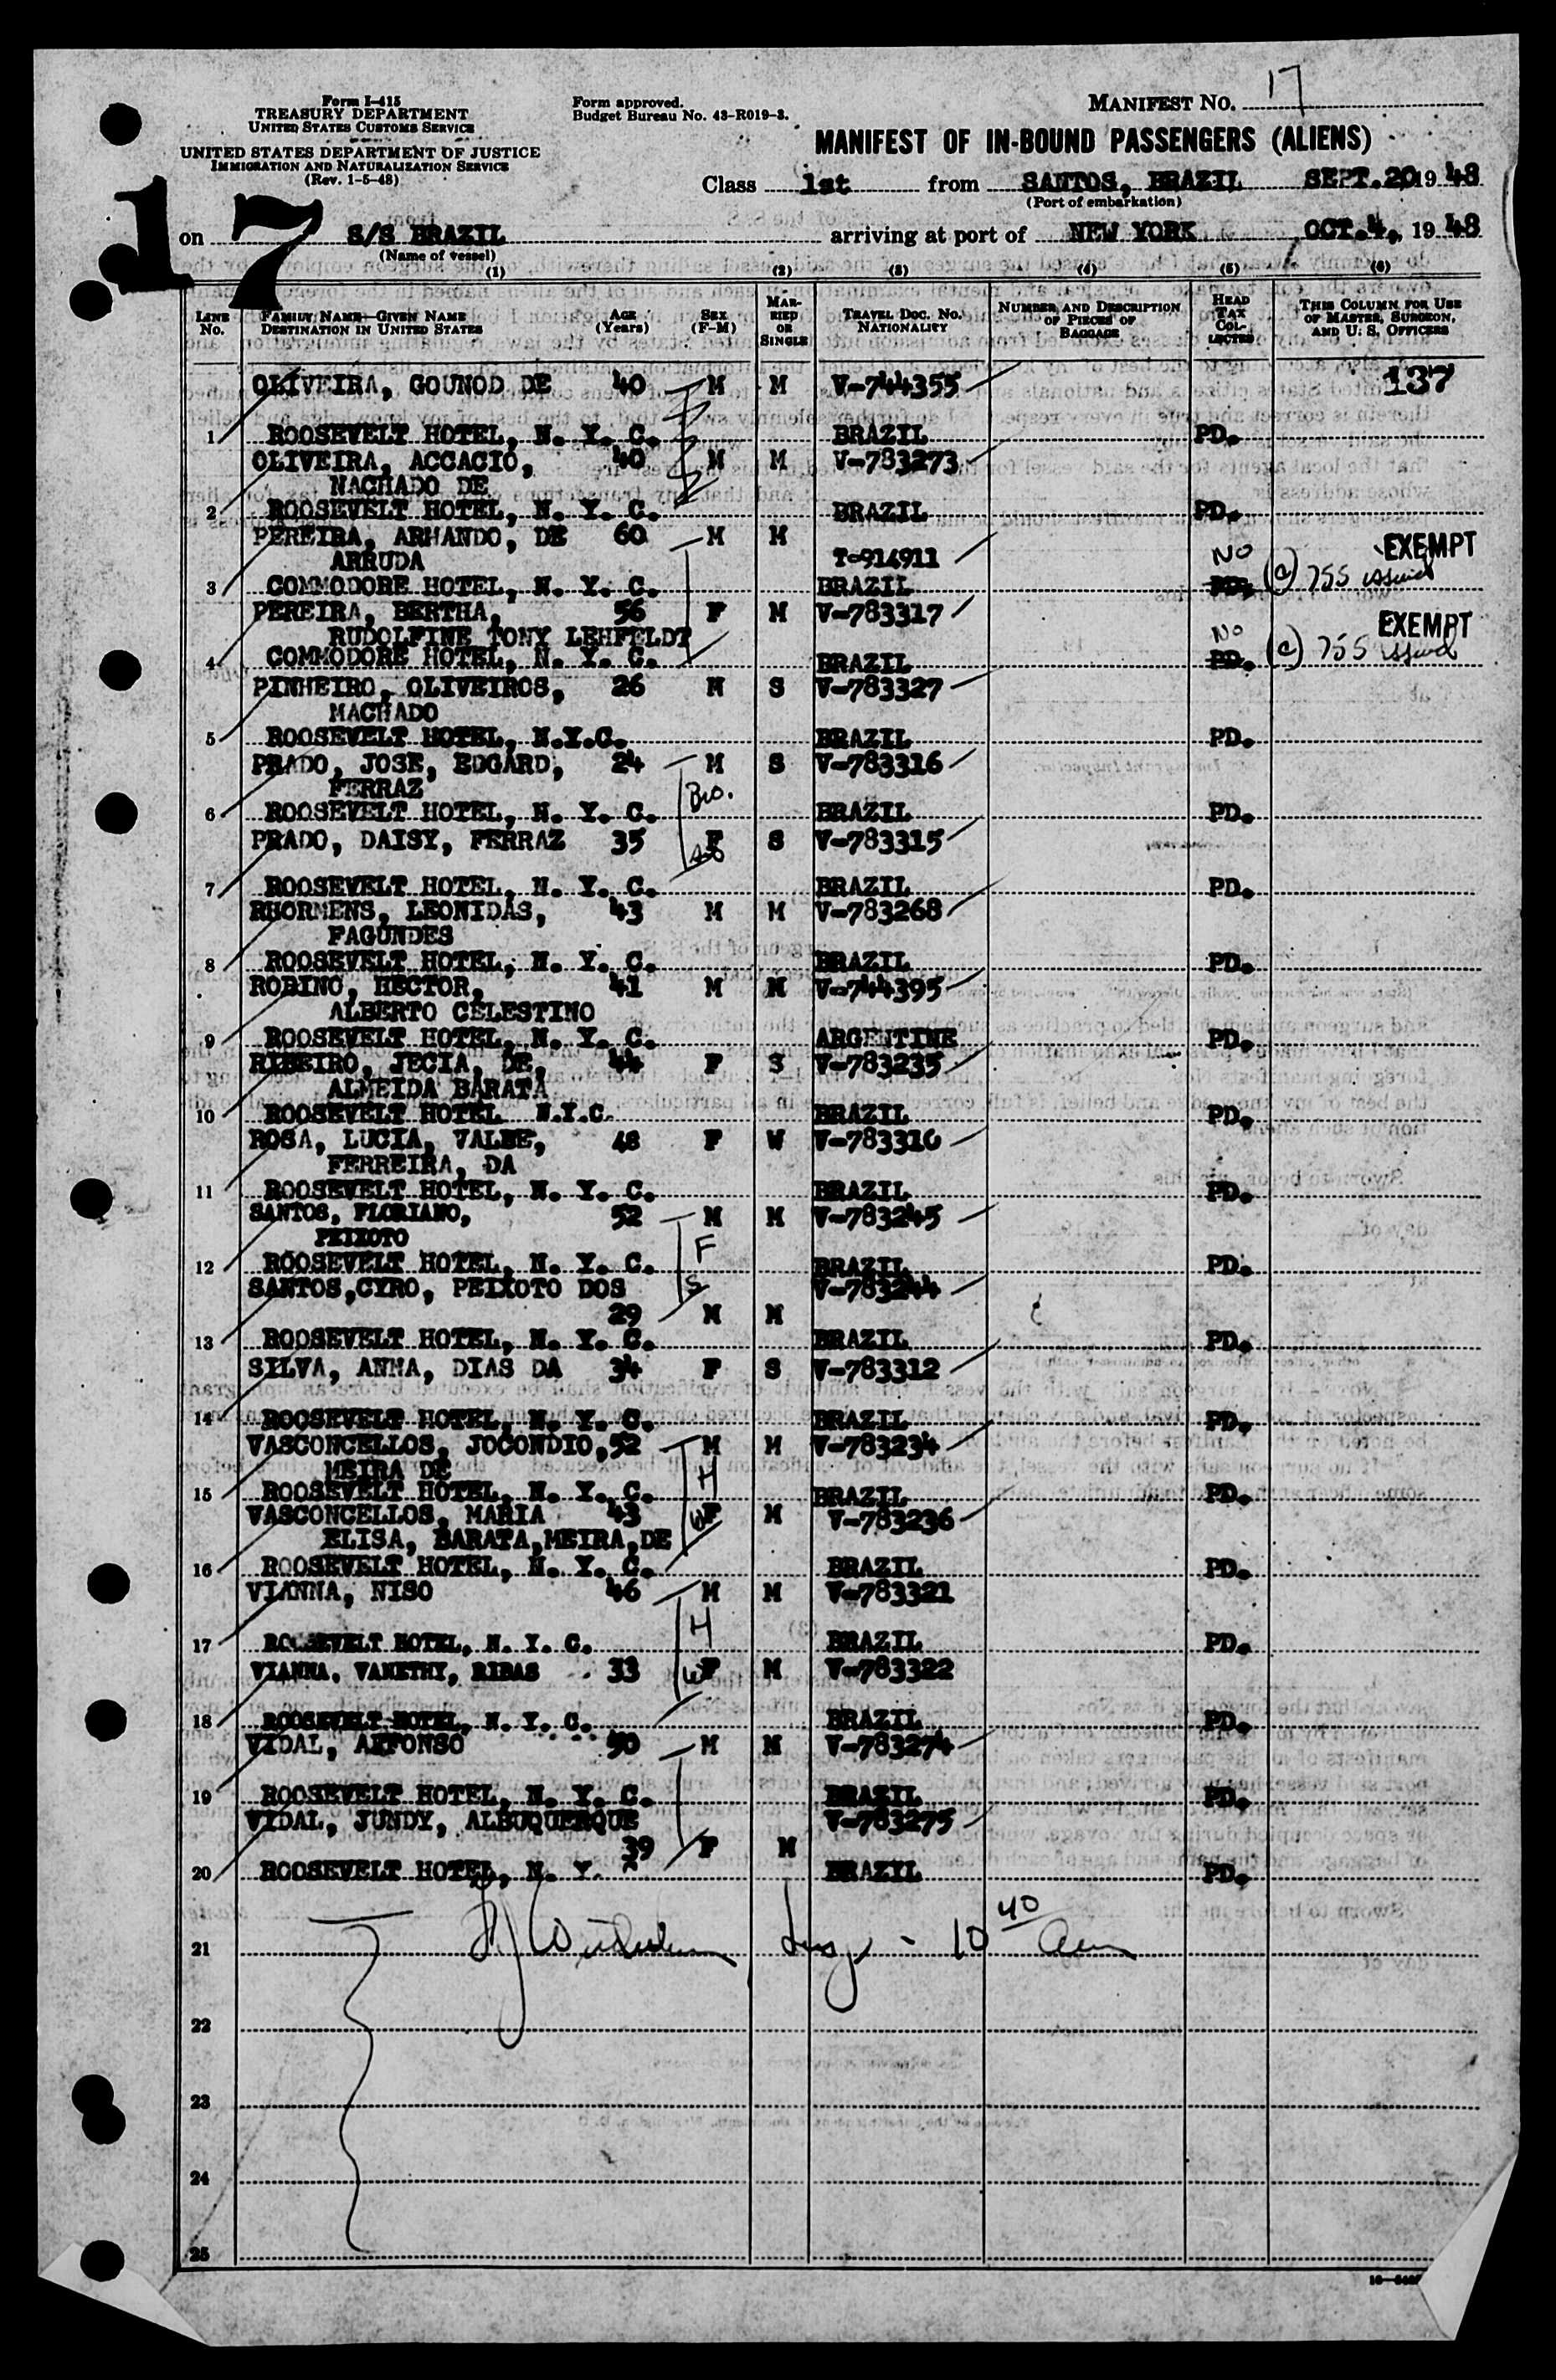 Form I-415
TREASURY DEPARTMENT
UNITED STATES CUSTOMS SERVICE
UNITED STATES DEPARTMENT OF JUSTICE
IMMIGRATION AND NATURALIZATION SERVICE
(Rev. 1-5-48)
Form approved.
Budget Bureau No. 43-R019-3.
MANIFEST NO. 17
MANIFEST OF IN-BOUND PASSENGERS (ALIENS)
Class 1st from SANTOS, BRAZIL SEPT.20 19 48
(Port of embarkation)
17
on S/S BRAZIL arriving at port of NEW YORK OCT.4, 19 48
(Name of vessel)
(1) (2) (3) (4) (5) (6)
LINE No. FAMILY NAME—GIVEN NAME DESTINATION IN UNITED STATES AGE (Years) SEX (F-M) MARRIED OR SINGLE TRAVEL DOC. NO. NATIONALITY NUMBER AND DESCRIPTION OF PIECES OF BAGGAGE HEAD TAX COLLECTED THIS COLUMN FOR USE OF MASTER, SURGEON, AND U. S. OFFICERS
OLIVEIRA, GOUNOD DE 40 M M V-744355 137
1 ROOSEVELT HOTEL, N. Y. C. BRAZIL PD.
OLIVEIRA, ACCACIO, 40 M M V-783273
MACHADO DE
2 ROOSEVELT HOTEL, N. Y. C. BRAZIL PD.
PEREIRA, ARMANDO, DE 60 M M
ARRUDA T-914911 NO EXEMPT
3 COMMODORE HOTEL, N. Y. C. BRAZIL PD. (c) 755 issued
PEREIRA, BERTHA, 56 F M V-783317 EXEMPT
RUDOLFINE TONY LEHFELDT No
4 COMMODORE HOTEL, N. Y. C. BRAZIL PD. (c) 755 issued
PINHEIRO, OLIVEIROS, 26 M S V-783327
MACHADO
5 ROOSEVELT HOTEL, N.Y.C. BRAZIL PD.
PRADO, JOSE, EDGARD, 24 M S V-783316
FERRAZ Bro.
6 ROOSEVELT HOTEL, N. Y. C. BRAZIL PD.
PRADO, DAISY, FERRAZ 35 F S V-783315
7 ROOSEVELT HOTEL, N. Y. C. BRAZIL PD.
RHORMENS, LEONIDAS, 43 M M V-783268
FAGUNDES
8 ROOSEVELT HOTEL, N. Y. C. BRAZIL PD.
ROBINO, HECTOR, 41 M M V-744395
ALBERTO CELESTINO
9 ROOSEVELT HOTEL, N. Y. C. ARGENTINE PD.
RIBEIRO, JECIA, DE, 44 F S V-783235
ALMEIDA BARATA
10 ROOSEVELT HOTEL N.Y.C. BRAZIL PD.
ROSA, LUCIA, VALBE, 48 F W V-783310
FERREIRA, DA
11 ROOSEVELT HOTEL, N. Y. C. BRAZIL PD.
SANTOS, FLORIANO, 52 M M V-783245
PEIXOTO F
12 ROOSEVELT HOTEL, N. Y. C. BRAZIL PD.
SANTOS,CYRO, PEIXOTO DOS S V-783244
29 M M
13 ROOSEVELT HOTEL, N. Y. C. BRAZIL PD.
SILVA, ANNA, DIAS DA 34 F S V-783312
14 ROOSEVELT HOTEL, N. Y. C. BRAZIL PD.
VASCONCELLOS, JOCONDIO, 52 M M V-783234
MEIRA DE H
15 ROOSEVELT HOTEL, N. Y. C. BRAZIL PD.
VASCONCELLOS, MARIA 43 W F M V-783236
ELISA, BARATA,MEIRA,DE
16 ROOSEVELT HOTEL, N. Y. C. BRAZIL PD.
VIANNA, NISO 46 M M V-783321
H
17 ROOSEVELT HOTEL, N. Y. C. BRAZIL PD.
VIANNA, VANETHY, RIBAS 33 W F M V-783322
18 ROOSEVELT HOTEL, N. Y. C. BRAZIL PD.
VIDAL, AFFONSO 50 M M V-783274
19 ROOSEVELT HOTEL, N. Y. C. BRAZIL PD.
VIDAL, JUNDY, ALBUQUERQUE V-783275
39 F M
20 ROOSEVELT HOTEL, N. Y. BRAZIL PD.
21 Insp - 10 40 am
22
23
24
25